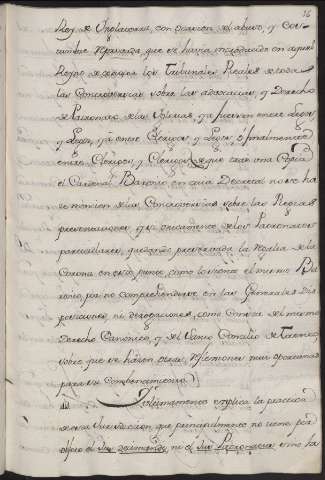 16
Rey de Inglaterra, con ocasion del abuso, y cos-
tumbre depravada, que se havia introducido en aquel
Reyno de conocer los Tribunales Reales de todas
las Controversias sobre las advocacion, y Derecho
de Patronato de las Yglesias, ya fuesen entre Legos
y Legos, ya entre Clerigos y Legos, ó finalmente
entre Clerigos, y Clerigos de que trae una Copia
el Cardenal Baronio en cuia Decretal no se ha
ze mencion de las Controversias sobre las Regias
presentaciones, y si unicamente de los Patronatos
particulares, quedando preservada la Regalia de la
Corona en este punto, como lo nota el mismo Ba
ronio, por no comprehenderse en las Generales Dis
posiciones, ni derogaciones, como consta del mismo
Derecho Canonico, y del Santo Concilio de Trento,
sobre que se hazen otras reflexiones mui oportunas
para su combencimiento
Ultimamente explica la practica
de esta Jurisdicion, que principalmente no tiene por
objeto el Jus decimandi, ni el Jus Patronatus sino ha